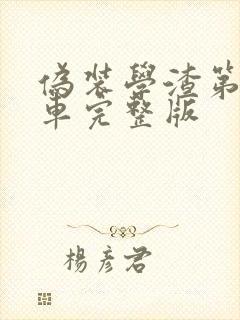 偽裝學渣第
車完整版
楊彥君